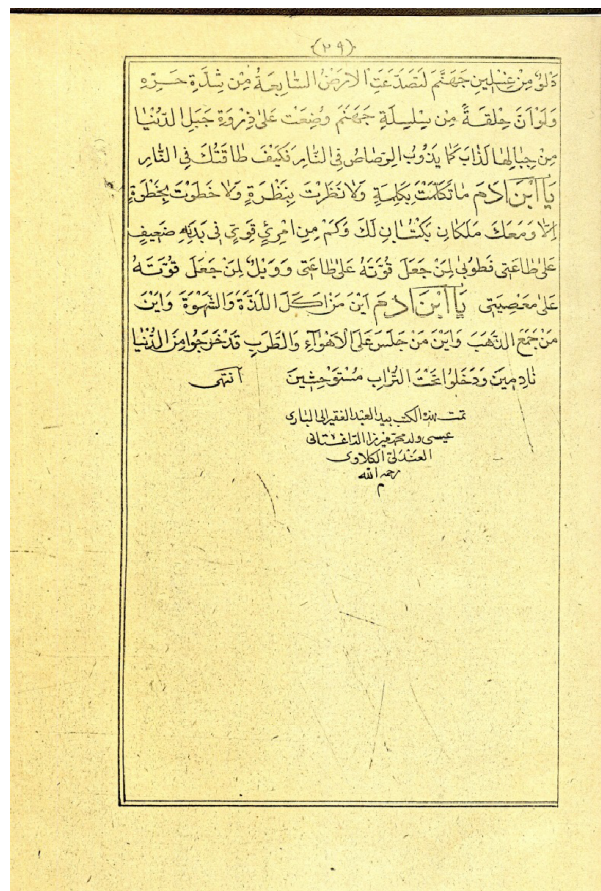 ﴿٢٩﴾
دَلْوٌ مِنْ غِسْلِينِ جَهَنَّمَ لَتَصَدَّعَتِ الْاَرْضُ السَّابِعَةُ مِنْ شِدَّةِ حَرِّهِ
وَلَوْ اَنَّ حَلْقَةً مِنْ سِلْسِلَةِ جَهَنَّمَ وُضِعَتْ عَلَى ذِرْوَةِ جَبَلِ الدُّنْيَا
مِنْ جِبَالِهَا لَذَابَ كَمَا يَذُوبُ الرَّصَاصُ فِي النَّارِ فَكَيْفَ طَاقَتُكَ فِي النَّارِ
يَا ابْنَ ادَمَ مَا تَكَلَّمْتَ بِكَلِمَةٍ وَلَا نَظَرْتَ بِنَظْرَةٍ وَلَا خَطَوْتَ بِخَطْوَةٍ
اِلَّا وَمَعَكَ مَلَكَانِ يَكْتُبَانِ لَكَ وَكَمْ مِنِ امْرِئٍ قَوِيٍّ فِي بَدَنِهِ ضَعِيفٍ
عَلَى طَاعَتِي فَطُوبَى لِمَنْ جَعَلَ قُوَّتَهُ عَلَى طَاعَتِي وَوَيْلٌ لِمَنْ جَعَلَ قُوَّتَهُ
عَلَى مَعْصِيَتِي يَا ابْنَ ادَمَ اَيْنَ مَنْ اَكَلَ اللَّذَّةَ وَالشَّهْوَةَ وَاَيْنَ
مَنْ جَمَعَ الذَّهَبَ وَاَيْنَ مَنْ جَلَسَ عَلَى الْاَهْوَاءِ وَالطَّرَبِ قَدْ خَرَجُوا مِنَ الدُّنْيَا
نَادِمِينَ وَدَخَلُوا تَحْتَ التُّرَابِ مُسْتَوْحِشِينَ انتهى
تمت هذه الكتب بيد العبد الفقير الى البارى
عيسى ولد محمد ميرزا الداغستانى
العندلى الكلاوى
رحمه الله
م